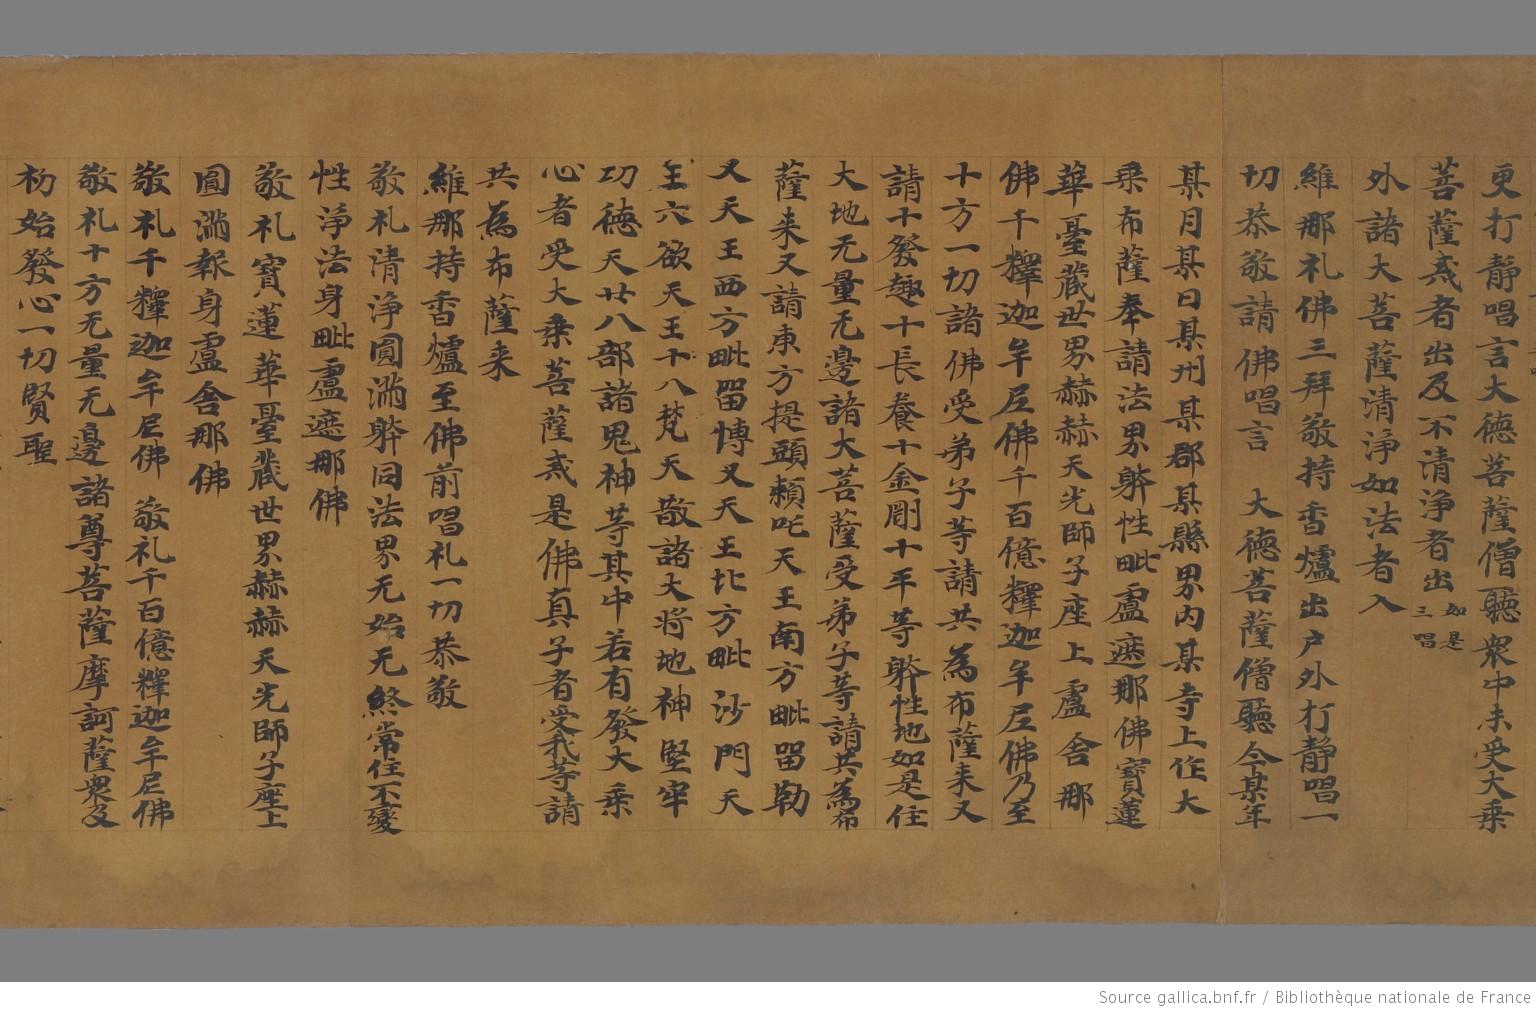 更打静唱言大德菩薩僧聽衆中未受大乘
菩薩戒者出及不清淨者出如是三唱
外諸大菩薩清淨如法者入
維那礼佛三拜敬持香爐出户外打静唱一
切恭敬請佛唱言 大德菩薩僧聽今某年
某月某日某州某郡某縣界内某寺上作大
乘布薩奉請法界躰性毗盧遮那佛寳蓮
華臺藏世界赫赫天光師子座上盧舎那
佛千釋迦牟尼佛千百億釋迦牟尼佛乃至
十方一切諸佛受弟子等請共為布薩来又
請十發趣十長養十金剛十平等躰性地如是住
大地无量无邊諸大菩薩受弟子等請共為布
薩来又請東方提頭頼吒天王南方毗留勒
叉天王西方毗留博叉天王北方毗沙門天
王六欲天王十八梵天敬諸大将地神堅牢
功德天廿八部諸鬼神等其中若有發大乘
心者受大乘菩薩戒是佛真子者受我等請
共為布薩来
維那持香爐至佛前唱礼一切恭敬
敬礼清淨圓滿躰同法界无始无終常住不變
性淨法身毗盧遮那佛
敬礼寳蓮華臺藏世界赫赫天光師子座上
圓滿報身盧舎那佛
敬礼千釋迦牟尼佛 敬礼千百億釋迦牟尼佛
敬礼十方无量无邊諸尊菩薩摩訶薩衆及
初始發心一切賢聖
Source gallica.bnf.fr / Bibliothèque nationale de France